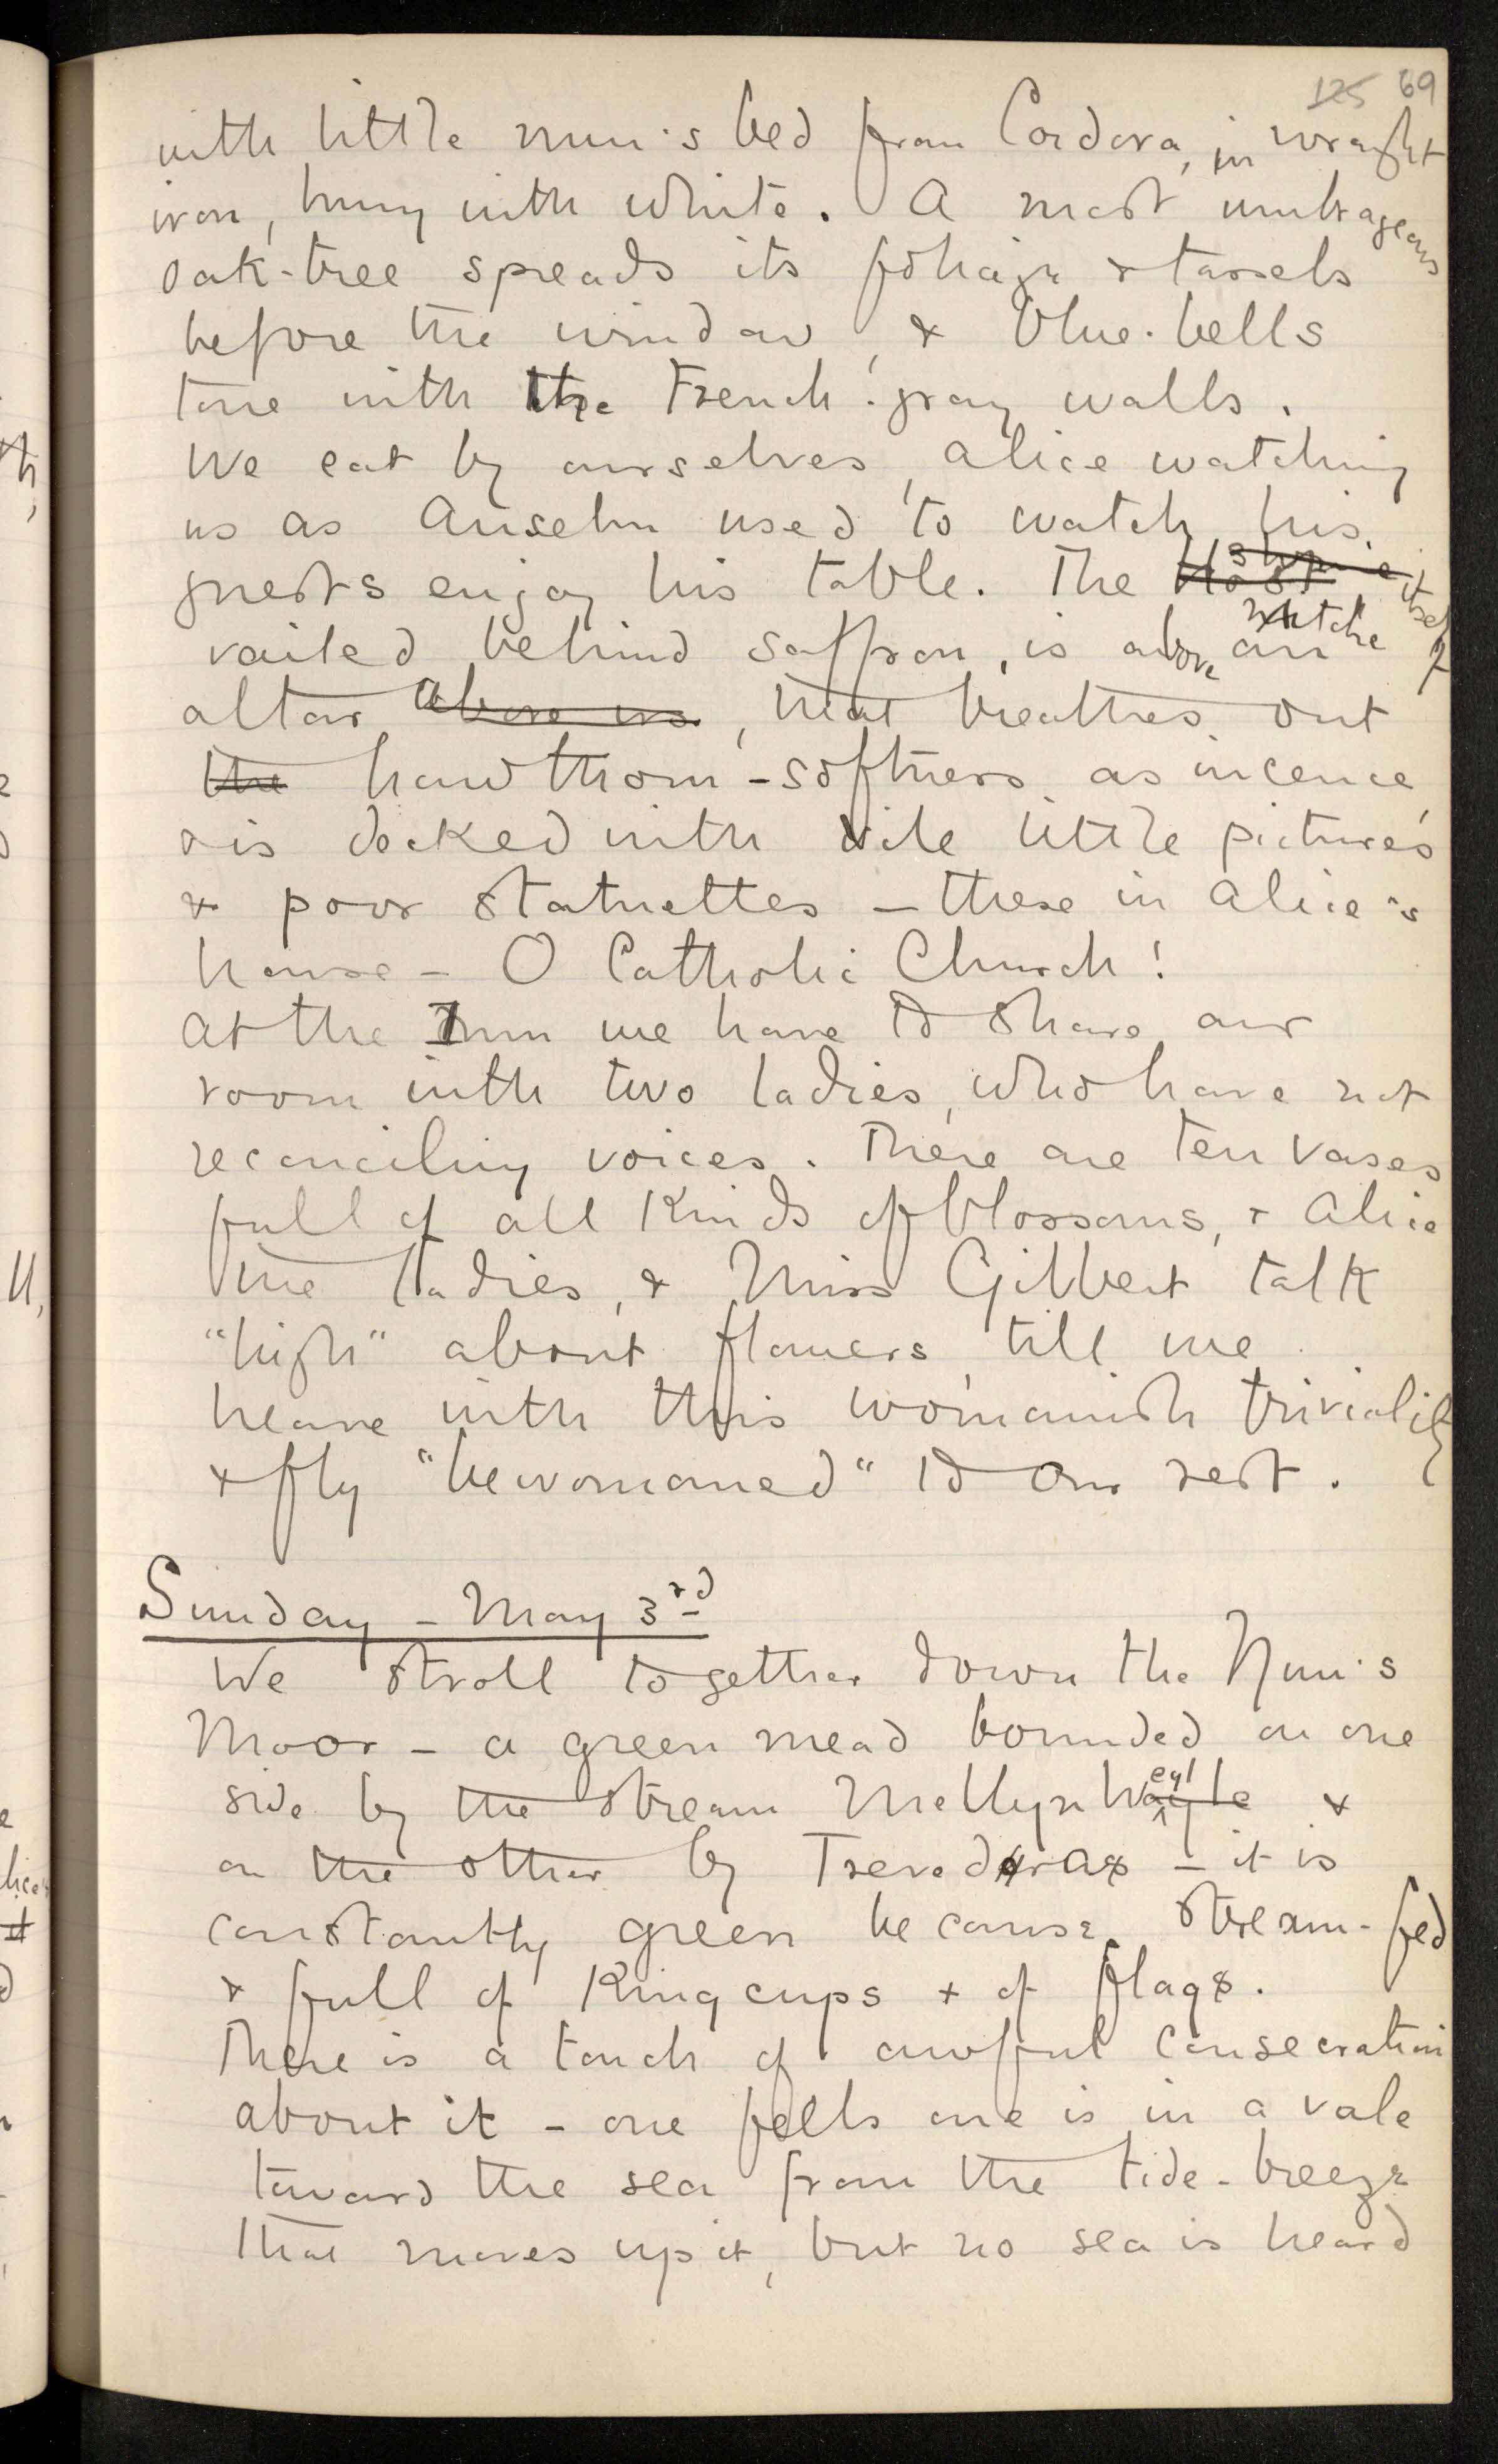 125 69
with little nun's bed from Cordova, in wrought
iron, hung with white. A most umbrageous
oak-tree spreads its foliage & tassels
before the window, & blue-bells
tone with the French-gray walls.
We eat by ourselves, Alice watching
us as Anselm used to watch his
guests enjoy his table. The Host shrine itself
vailed behind saffron, is above an
altar above us, that breathes out
the hawthorn-softness as incence,
& is decked with vile little pictures
& poor statuettes – these in Alice's
house – O Catholic Church!
At the Inn we have to share our
room with two ladies, who have not
reconciling voices. There are ten vases
full of all kinds of blossoms, & Alice
the ladies, & Miss Gilbert talk
"high" about flowers, till we
heave with this womanish triviality
& fly "bewomaned" to our rest.
Sunday – May 3rd
We stroll together down the Nun's
Moor – a green mead bounded on one
side by the stream Mellyn
on the other by – it is
constantly green because stream-fed
& full of Kingcups & of flags.
There is a touch of awful consecration
about it – one fells one is in a vale
toward the sea from the tide-breeze
that moves up it, but no sea is heard